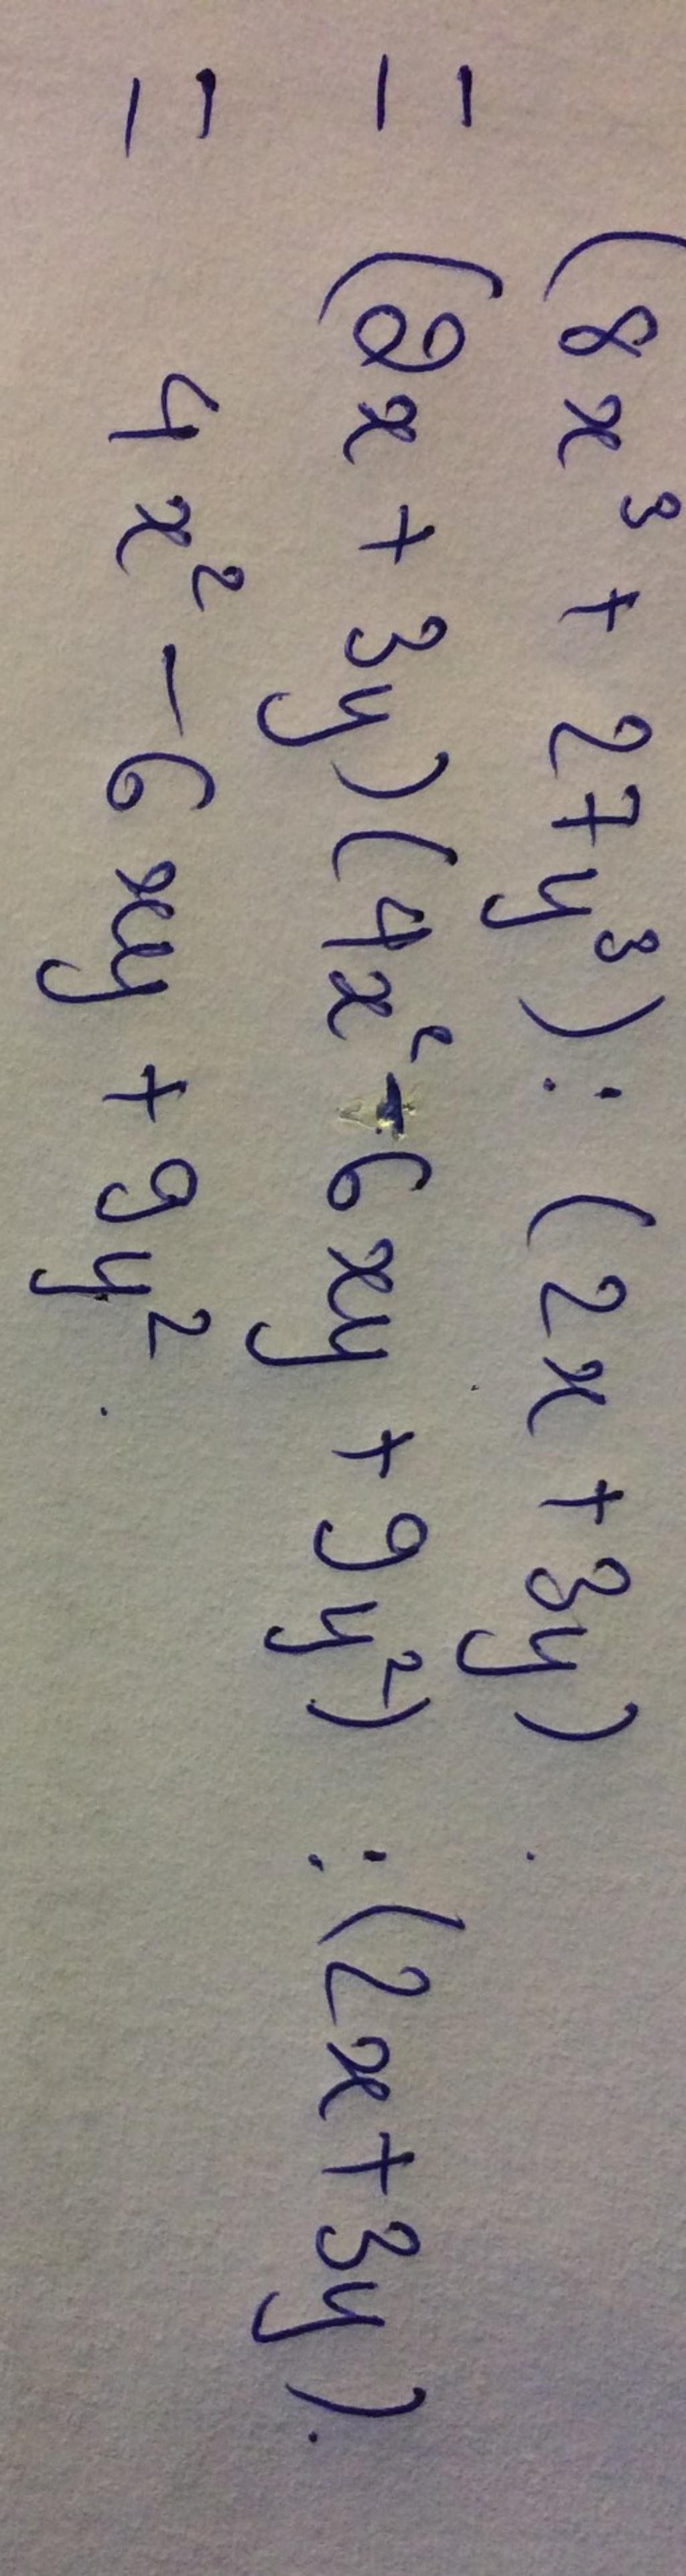 (8x³ + 27y³) : (2x + 3y)
= (2x + 3y)(4x² - 6xy + 9y²) : (2x + 3y).
= 4x² - 6xy + 9y².